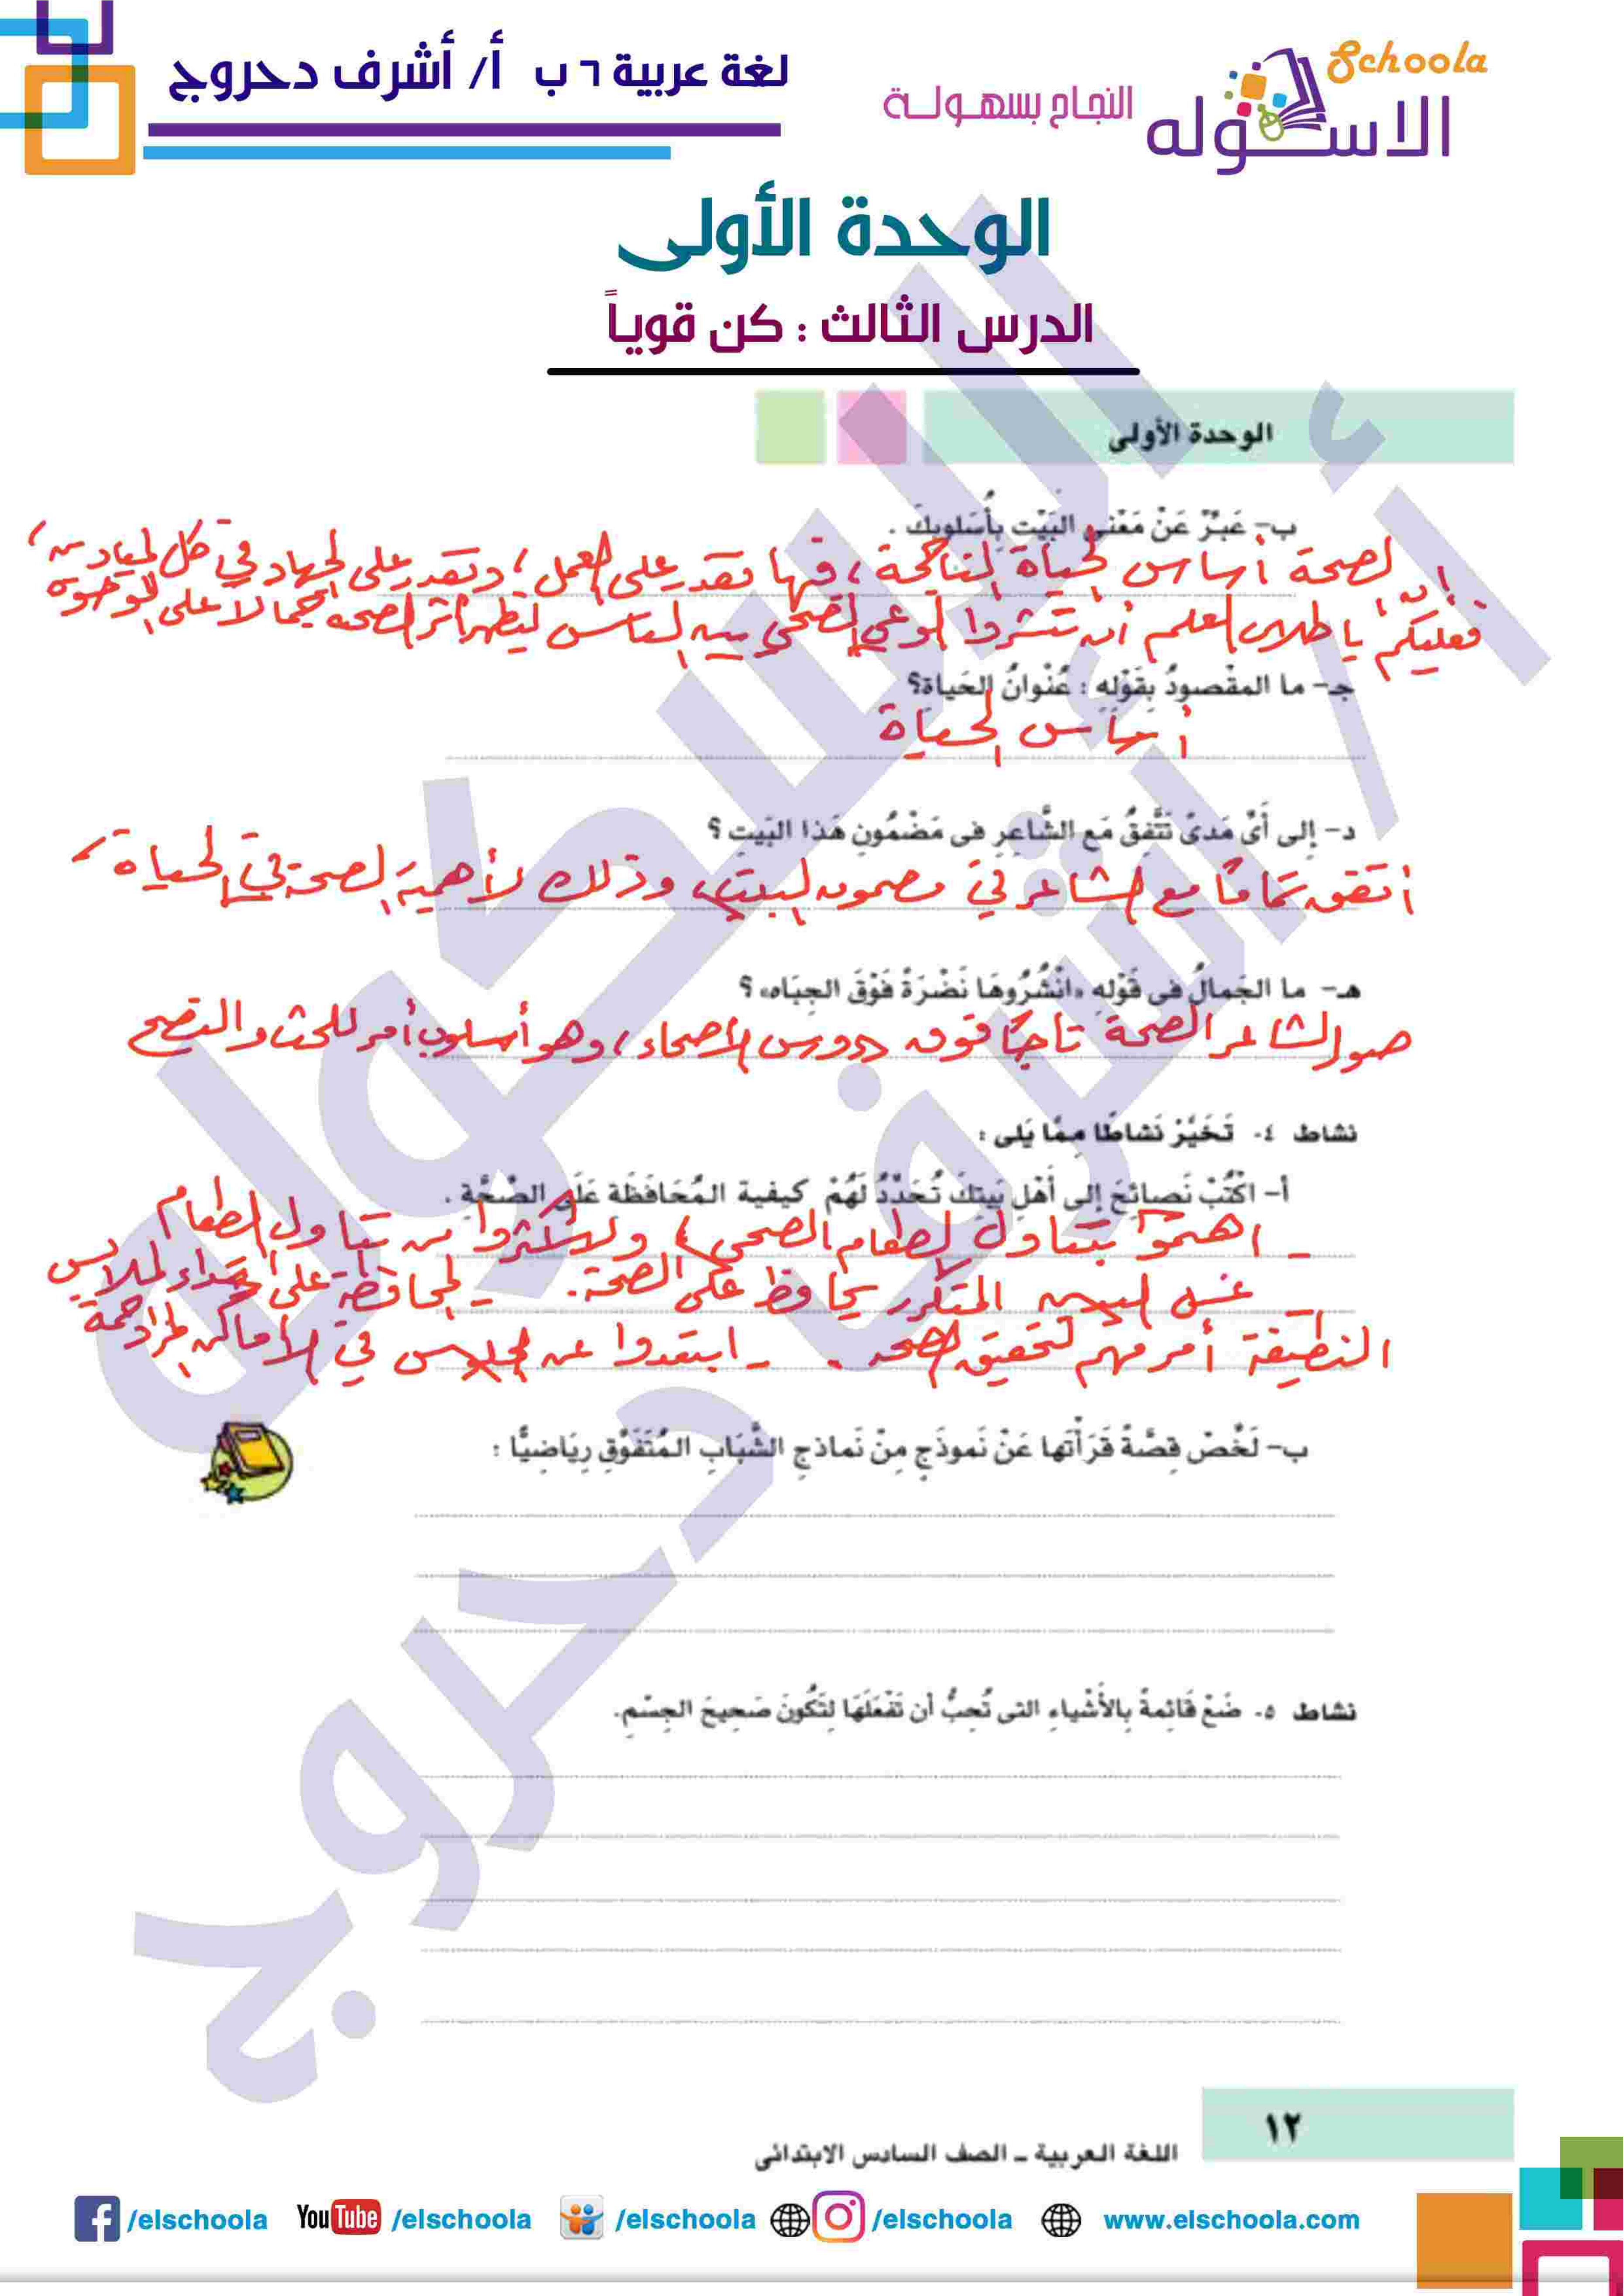 Schoola
الاسكوله
النجاح بسهولة
لغة عربية ٦ ب أ/ أشرف دحروج
الوحدة الأولى
الدرس الثالث : كن قوياً
الوحدة الأولى
ب- عَبِّرْ عَنْ مَعْنى البَيْتِ بِأُسْلوبِكَ .
إن الصحة أساس الحياة الناجحة ، فبها نقدر على العمل ، ونقدر على الجهاد في كل الميادين ،
فعليكم يا طلاب العلم أن تنشروا الوعي الصحي بين الناس ليظهر أثر الصحة جمالاً على الوجوه .
جـ- ما المقْصودُ بِقَوْلِهِ : عُنْوانُ الحَياة؟
أساس الحياة
د- إلى أَىِّ مَدىً تَتَّفِقُ مَع الشَّاعِرِ فى مَضْمُونِ هَذا البَيتِ ؟
أتفق تمامًا مع الشاعر في مضمون البيت ، وذلك لأهمية الصحة في الحياة
هـ- ما الجَمالُ فى قَوْلِهِ «انْشُرُوهَا نَضْرَةً فَوْقَ الجِبَاه» ؟
صور الشاعر الصحة تاجًا فوق رءوس الأصحاء ، وهو أسلوب أمر للحث والنصح
نشاط ٤- تَخَيَّرْ نَشاطًا مِمَّا يَلى :
أ- اكْتُبْ نَصائِحَ إلى أَهْلِ بَيتِكَ تُحَدِّدُ لَهُمْ كيفية المُحَافَظَةِ عَلَى الصِّحَّةِ .
- اهتموا بتناول الطعام الصحي ، ولا تكثروا من تناول الطعام
- غسل اليدين المتكرر يحافظ على الصحة . - المحافظة على ارتداء الملابس
النظيفة أمر مهم لتحقيق الصحة . - ابتعدوا عن الجلوس في الأماكن المزدحمة
ب- لَخِّصْ قِصَّةً قَرَأْتَها عَنْ نَموذَجٍ مِنْ نَماذجِ الشَّبَابِ المُتَفَوِّقِ رِيَاضِيًّا :
نشاط ٥- ضَعْ قَائِمةً بِالأَشْياءِ التى تُحِبُّ أن تَفْعَلَهَا لِتَكُونَ صَحِيحَ الجِسْمِ.
١٢
اللغة العربية - الصف السادس الابتدائى
/elschoola YouTube /elschoola /elschoola /elschoola www.elschoola.com
أ/ أشرف دحروج
الاسكوله